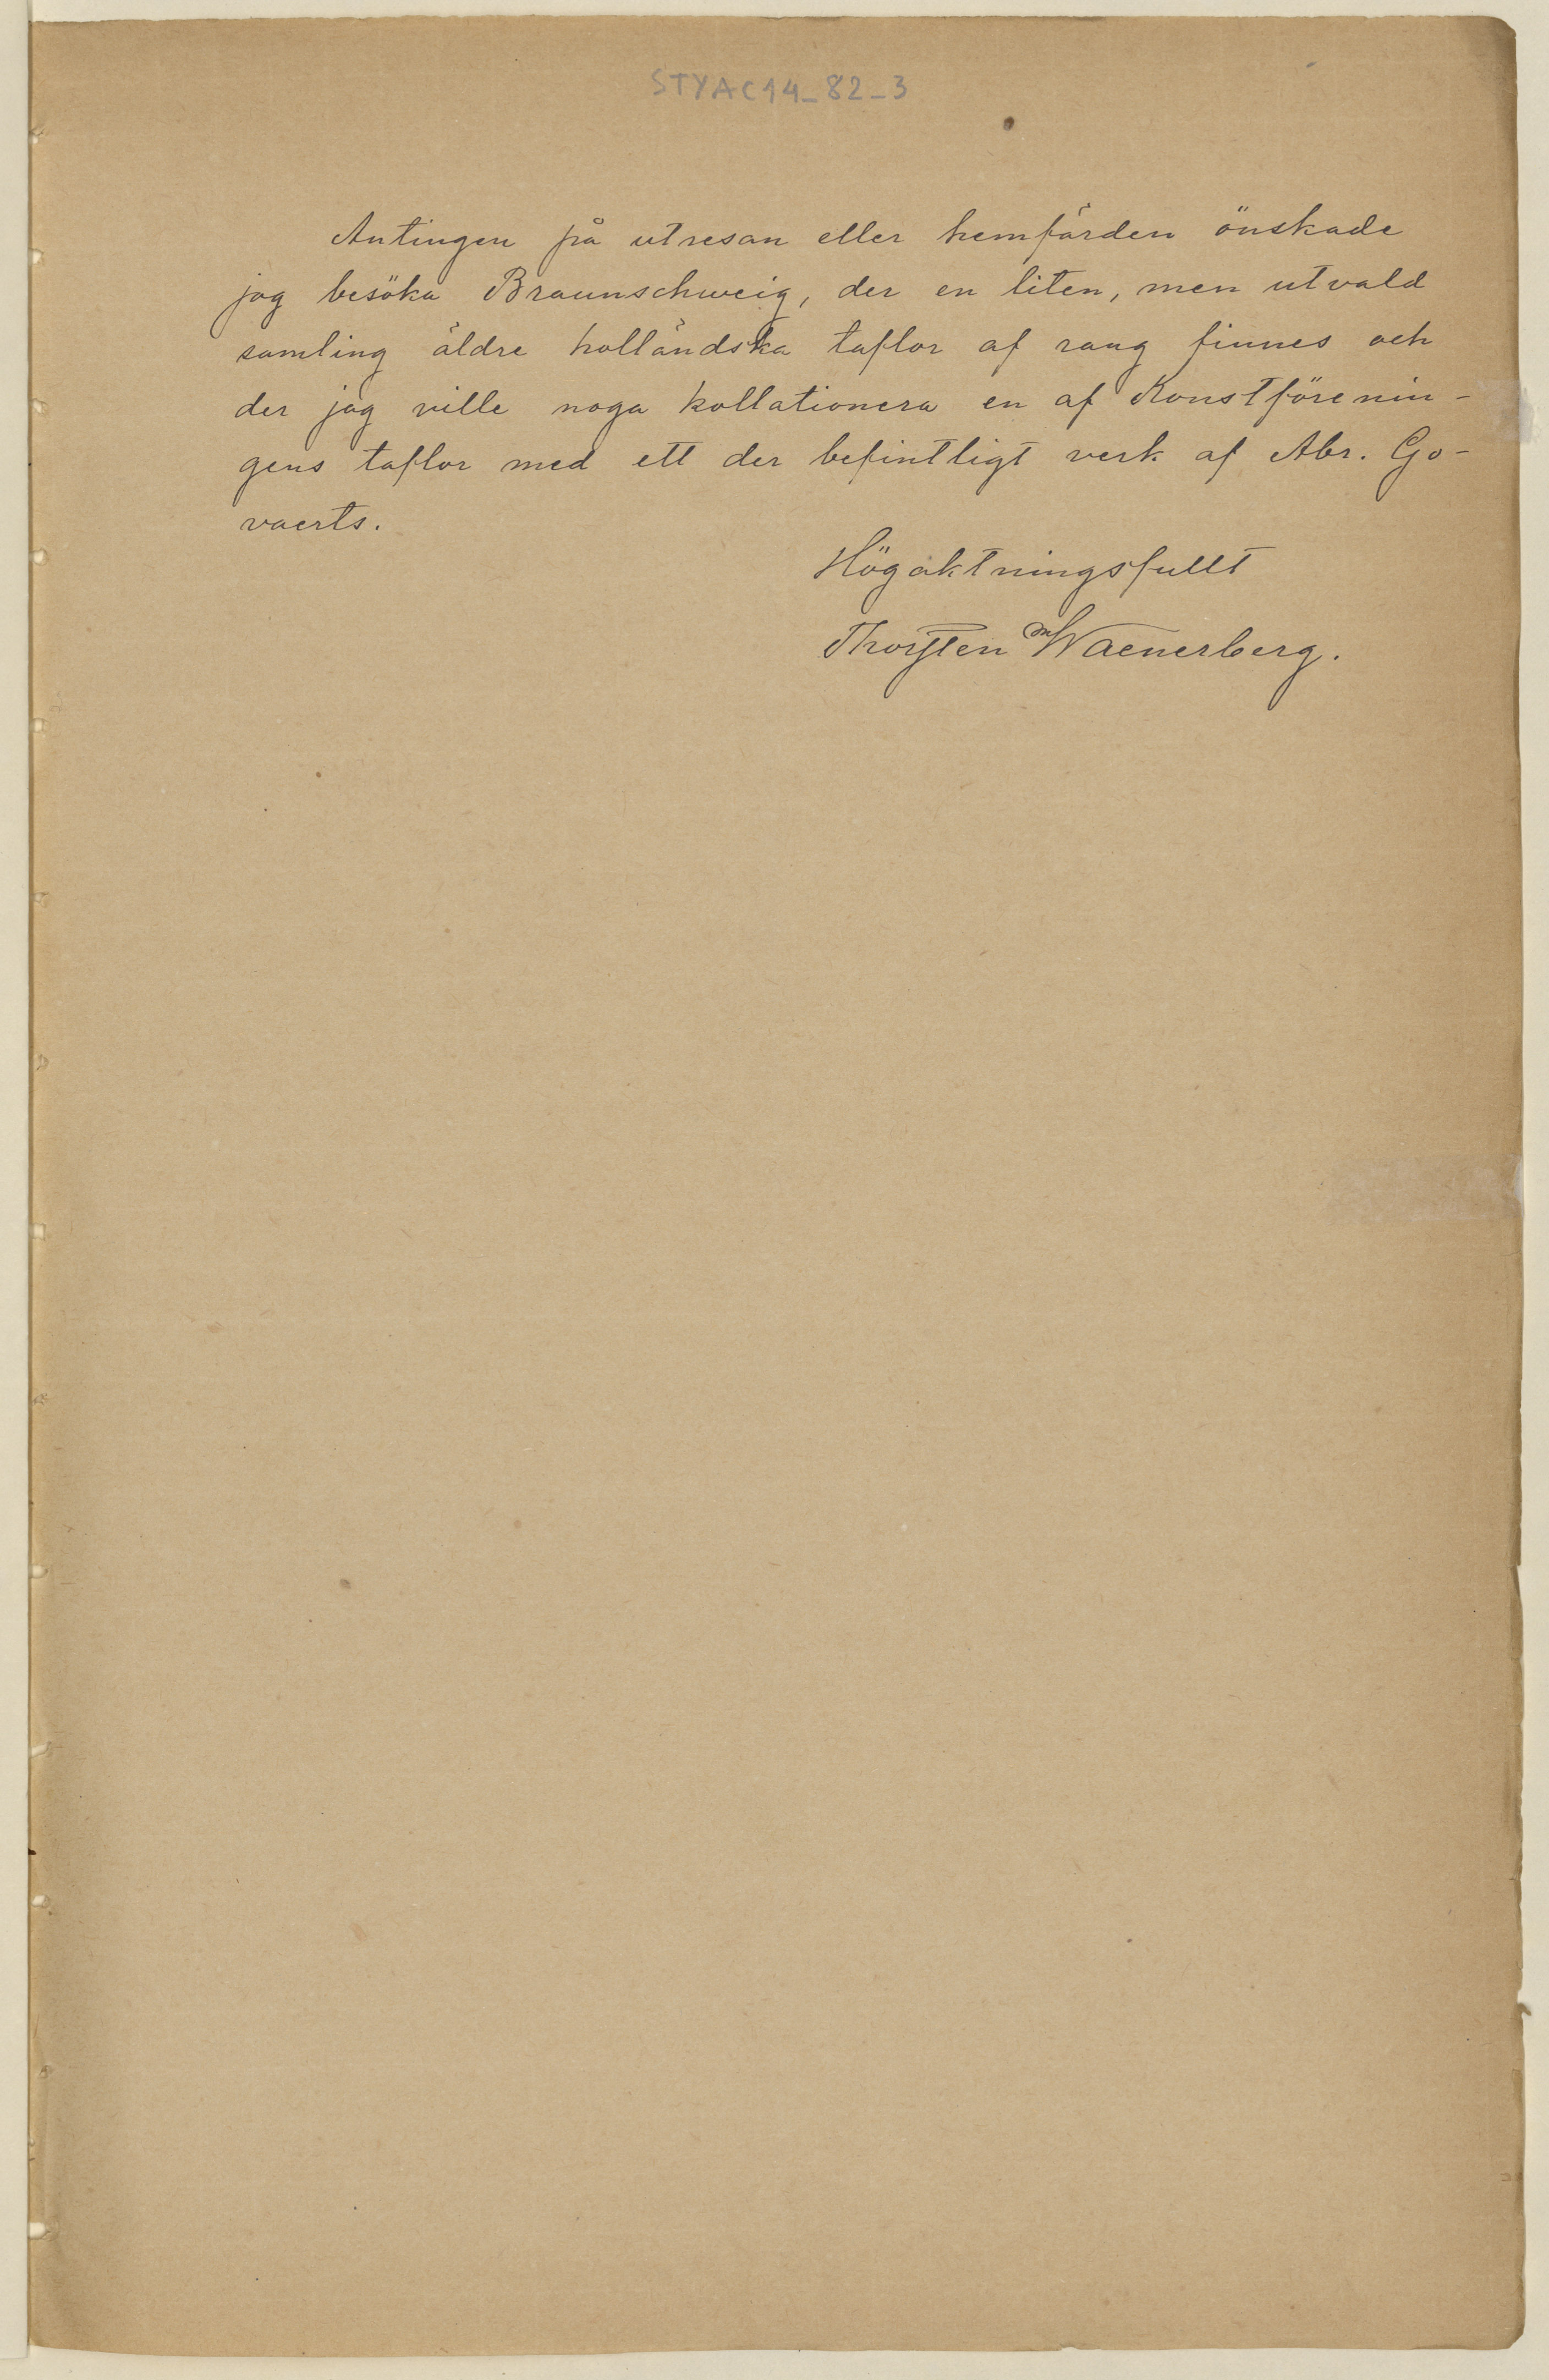 STYAC14_82_3
Antingen på utresan eller hemfärden önskade
jag besöka Braunschweig, der en liten, men utvald
samling äldre holländska taflor af rang finnes och
der jag ville noga kollationera en af Konstförenin-
gens taflor med ett der befintligt verk af Abr. Go-
vaerts.
Högaktningsfullt
Thorsten Waenerberg.